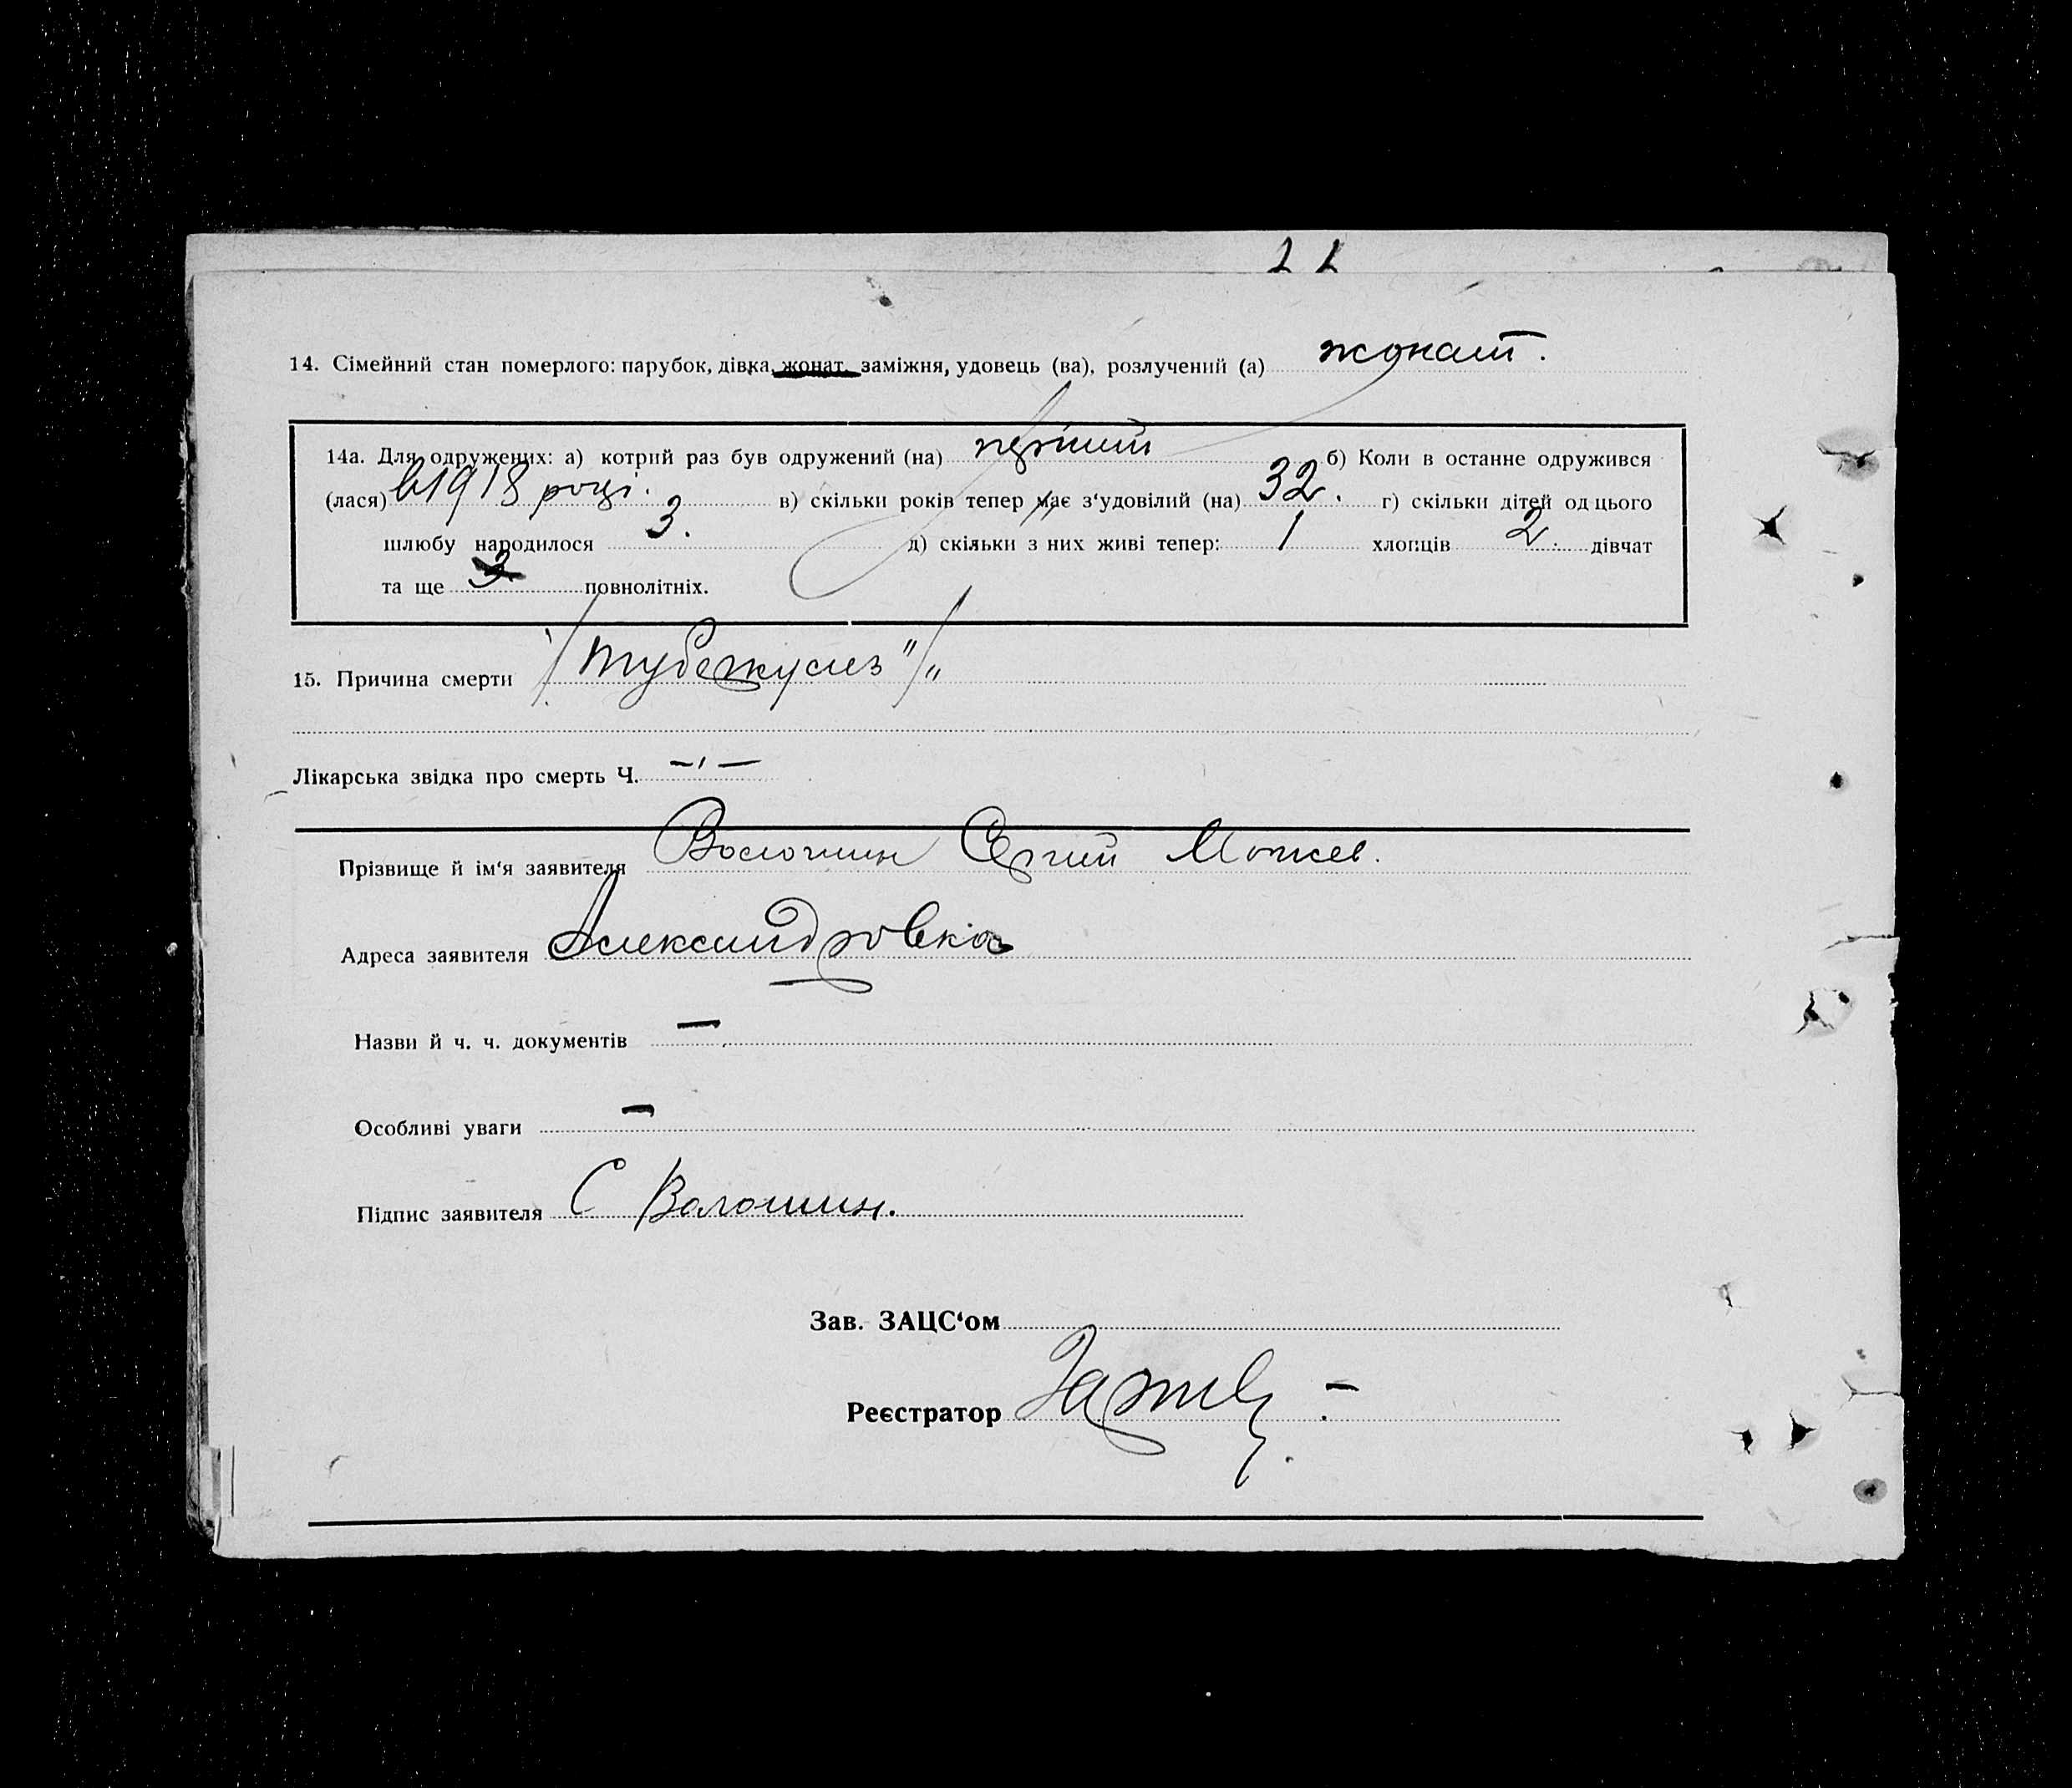 14. Сімейний стан померлого: парубок, дівка, жонат, заміжня, удовець (ва), розлучений (а) жонат.
14а. Для одружених: а) котрий раз був одружений (на) перший б) Коли в останне одружився
(лася) в 1918 році. в) скільки років тепер має з‘удовілий (на) 32. г) скільки дітей од цього
шлюбу народилося 3. д) скільки з них живі тепер: 1 хлопців 2. дівчат
та ще 3 повнолітніх.
15. Причина смерти /Тубежулез"/"
Лікарська звідка про смерть Ч. — ' —
Прізвище й ім‘я заявителя Волошин Сергий
Адреса заявителя Александровка
Назви й ч. ч. документів —
Особливі уваги —
Підпис заявителя С Волошин.
Зав. ЗАЦС‘ом
Реєстратор